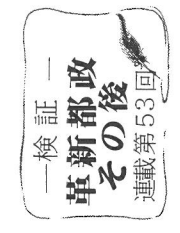 ―検証―
革新都政
その後
連載第53回